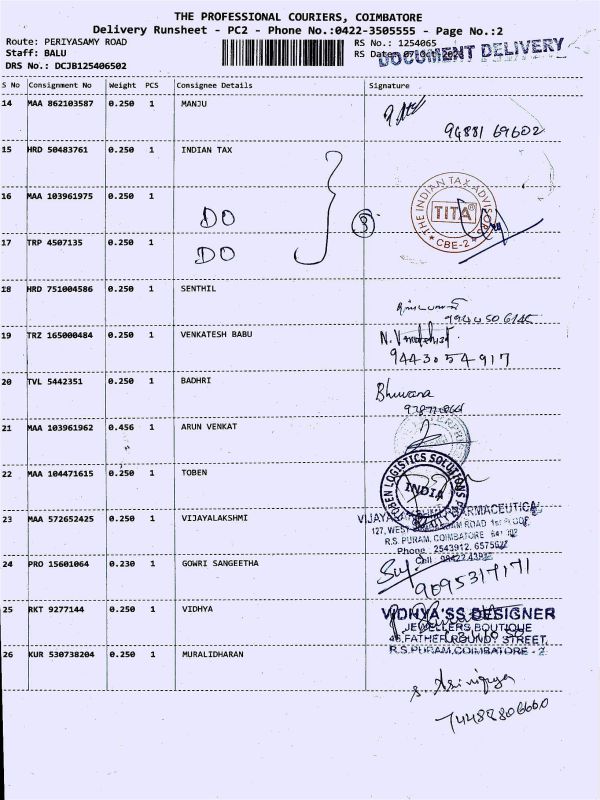 THE PROFESSIONAL COURIERS, COIMBATORE
Delivery Runsheet - PC2 - Phone No.:0422-3505555 - Page No.:2
Route: PERIYASAMY ROAD
Staff: BALU
DRS No.: DCJB125406502
RS No.: 1254065
RS Date
DOCUMENT DELIVERY
S No Consignment No Weight PCS Consignee Details Signature
14 MAA 862103587 0.250 1 MANJU
94881 69602
15 HRD 50483761 0.250 1 INDIAN TAX
16 MAA 103961975 0.250 1 DO
THE INDIAN TAX ADVISOR
TITA
CBE-2
3
17 TRP 4507135 0.250 1 DO
18 HRD 751004586 0.250 1 SENTHIL
19 TRZ 165000484 0.250 1 VENKATESH BABU
9443054917
20 TVL 5442351 0.250 1 BADHRI
Bhuvana
21 MAA 103961962 0.456 1 ARUN VENKAT
22 MAA 104471615 0.250 1 TOBEN
TOBEN LOGISTICS SOLUTIONS
INDIA
23 MAA 572652425 0.250 1 VIJAYALAKSHMI
R.S. PURAM, COIMBATORE
Phone : 2543912,
24 PRO 15601064 0.230 1 GOWRI SANGEETHA
9095317171
25 RKT 9277144 0.250 1 VIDHYA
VIDHYA'SS DESIGNER
JEWELLERS, BOUTIQUE
STREET,
R.S.PURAM, COIMBATORE - 2
26 KUR 530738204 0.250 1 MURALIDHARAN